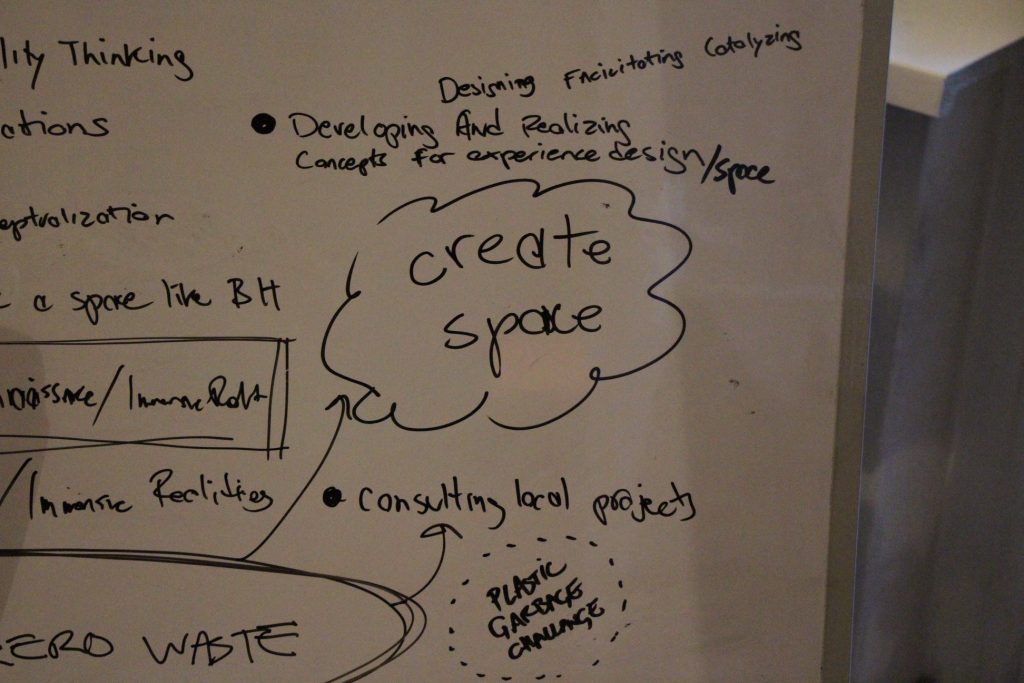 lity Thinking
Designing Facicitating Catalyzing
ations
• Developing And Realizing
Concepts for experience design/space
eptualization
create
space
a space like BH
/Immersive
/Immersive Realities
• Consulting local projects
PLASTIC
GARBAGE
CHALLANGE
ZERO WASTE